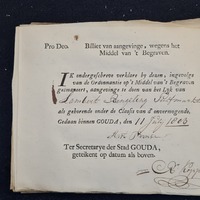 Pro Deo. Billiet van aangevinge, wegens het
Middel van 't Begraven.
IK ondergeschreve verklare by dezen, ingevolge
van de Ordonnantie op 't Middel van 't Begraven
geëmaneert, aangevinge te doen van het Lyk van
Lambert
als gehoorende onder de Classis van onvermogende.
Gedaan binnen GOUDA, den 11 July 1803
Ter Secretarye der Stad GOUDA,
geteekent op datum als boven.